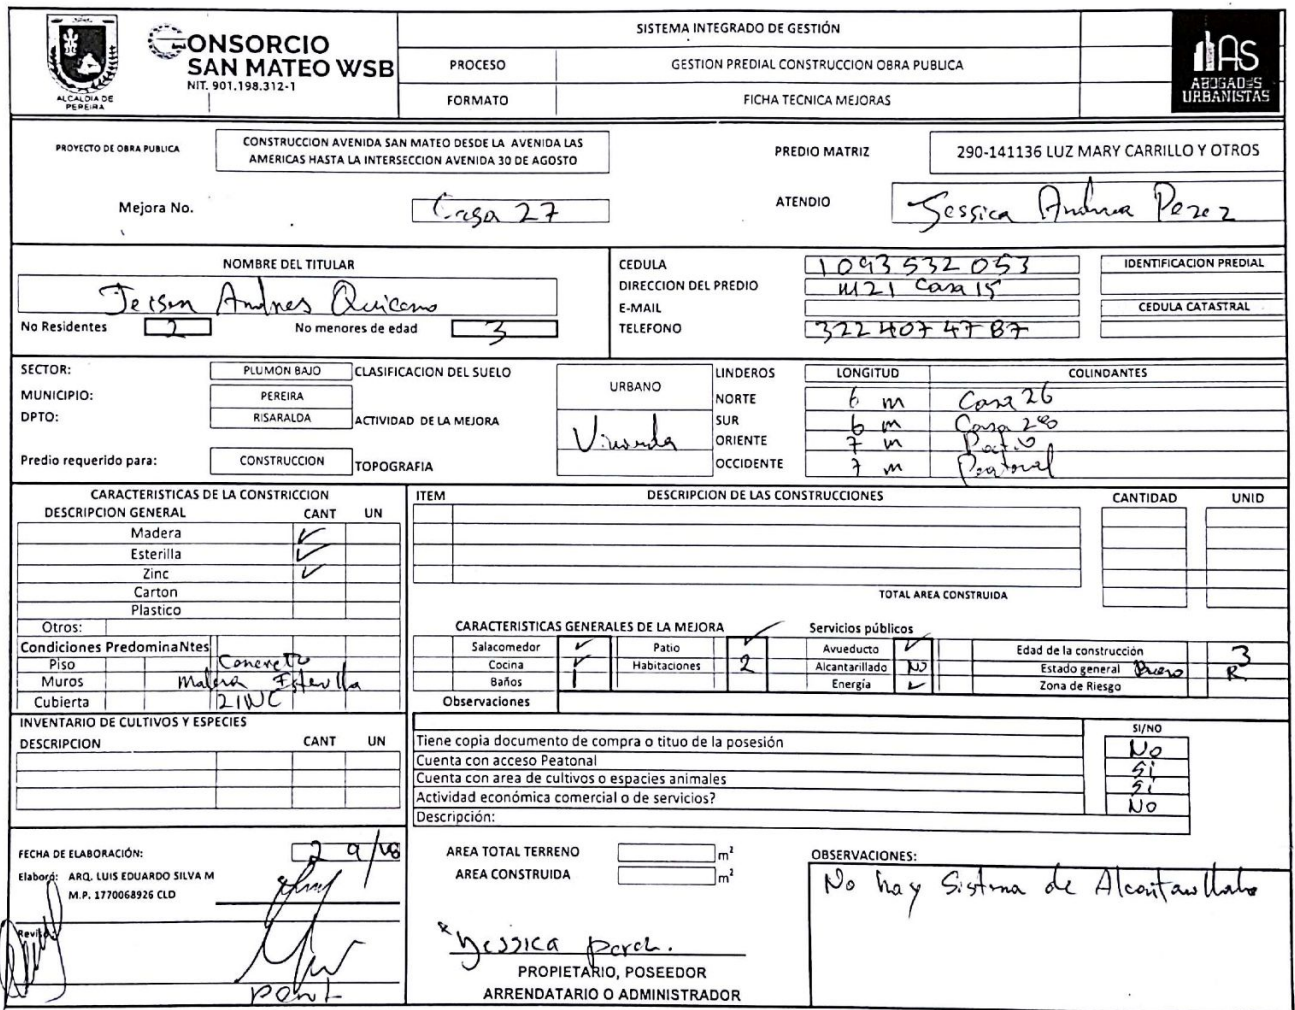 ALCALDIA DE
PEREIRA
CONSORCIO
SAN MATEO WSB
NIT. 901.198.312-1
SISTEMA INTEGRADO DE GESTIÓN
PROCESO GESTION PREDIAL CONSTRUCCION OBRA PUBLICA
FORMATO FICHA TECNICA MEJORAS
AS
ABOGADOS
URBANISTAS
PROYECTO DE OBRA PUBLICA
CONSTRUCCION AVENIDA SAN MATEO DESDE LA AVENIDA LAS
AMERICAS HASTA LA INTERSECCION AVENIDA 30 DE AGOSTO
PREDIO MATRIZ 290-141136 LUZ MARY CARRILLO Y OTROS
Mejora No. Casa 27
ATENDIO Jessica Andrea Perez
NOMBRE DEL TITULAR
Jeison Andres Quicano
No Residentes 2 No menores de edad 3
CEDULA 1093532053
DIRECCION DEL PREDIO M21 Casa 15
E-MAIL
TELEFONO 322 407 4787
IDENTIFICACION PREDIAL
CEDULA CATASTRAL
SECTOR: PLUMON BAJO
MUNICIPIO: PEREIRA
DPTO: RISARALDA
Predio requerido para: CONSTRUCCION
CLASIFICACION DEL SUELO URBANO
ACTIVIDAD DE LA MEJORA Vivienda
TOPOGRAFIA
LINDEROS LONGITUD COLINDANTES
NORTE 6 m Casa 26
SUR 6 m Casa 28
ORIENTE 7 m Patio
OCCIDENTE 7 m Peatonal
CARACTERISTICAS DE LA CONSTRICCION
DESCRIPCION GENERAL CANT UN
Madera ✓
Esterilla ✓
Zinc ✓
Carton
Plastico
Otros:
Condiciones PredominaNtes
Piso Concreto
Muros Madera Esterilla
Cubierta ZINC
ITEM DESCRIPCION DE LAS CONSTRUCCIONES CANTIDAD UNID
TOTAL AREA CONSTRUIDA
CARACTERISTICAS GENERALES DE LA MEJORA ✓ Servicios públicos
Salacomedor ✓ Patio ✓ Avueducto ✓ Edad de la construcción 3
Cocina ✓ Habitaciones 2 Alcantarillado NO Estado general R
Baños 1 Energía ✓ Zona de Riesgo
Observaciones
INVENTARIO DE CULTIVOS Y ESPECIES
DESCRIPCION CANT UN
SI/NO
Tiene copia documento de compra o tituo de la posesión No
Cuenta con acceso Peatonal Si
Cuenta con area de cultivos o espacies animales Si
Actividad económica comercial o de servicios? No
Descripción:
FECHA DE ELABORACIÓN:
Elaboró: ARQ. LUIS EDUARDO SILVA M
M.P. 1770068926 CLD
Revisó
AREA TOTAL TERRENO m²
AREA CONSTRUIDA m²
Yessica perez.
PROPIETARIO, POSEEDOR
ARRENDATARIO O ADMINISTRADOR
OBSERVACIONES:
No hay Sistema de Alcantarillado